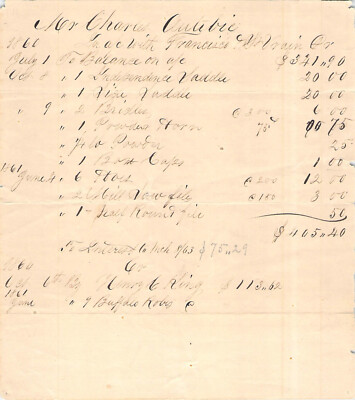 Mr Charles Autobie
1860 In a/c with Francisco St Vrain Dr
July 1 To Balance on a/c $341.90
Oct 8 " 1 Independence Saddle 20 00
" 1 Fine Saddle 20 00
" 9 " 2 Bridles @ 300 6 00
" 1 Powder Horn 75 " 75
" lb Powder 25
" 1 Box Caps 1 00
1861 June 4 " 6 Hoes @ 200 12 00
" 2 Mill Saw file @ 150 3 00
" 1 Half Round file 50
$405.40
To Interest to 1863 $75.29
1860 Cr
Oct By Henry C King $113.62
1861
June " 9 Buffalo Robes @